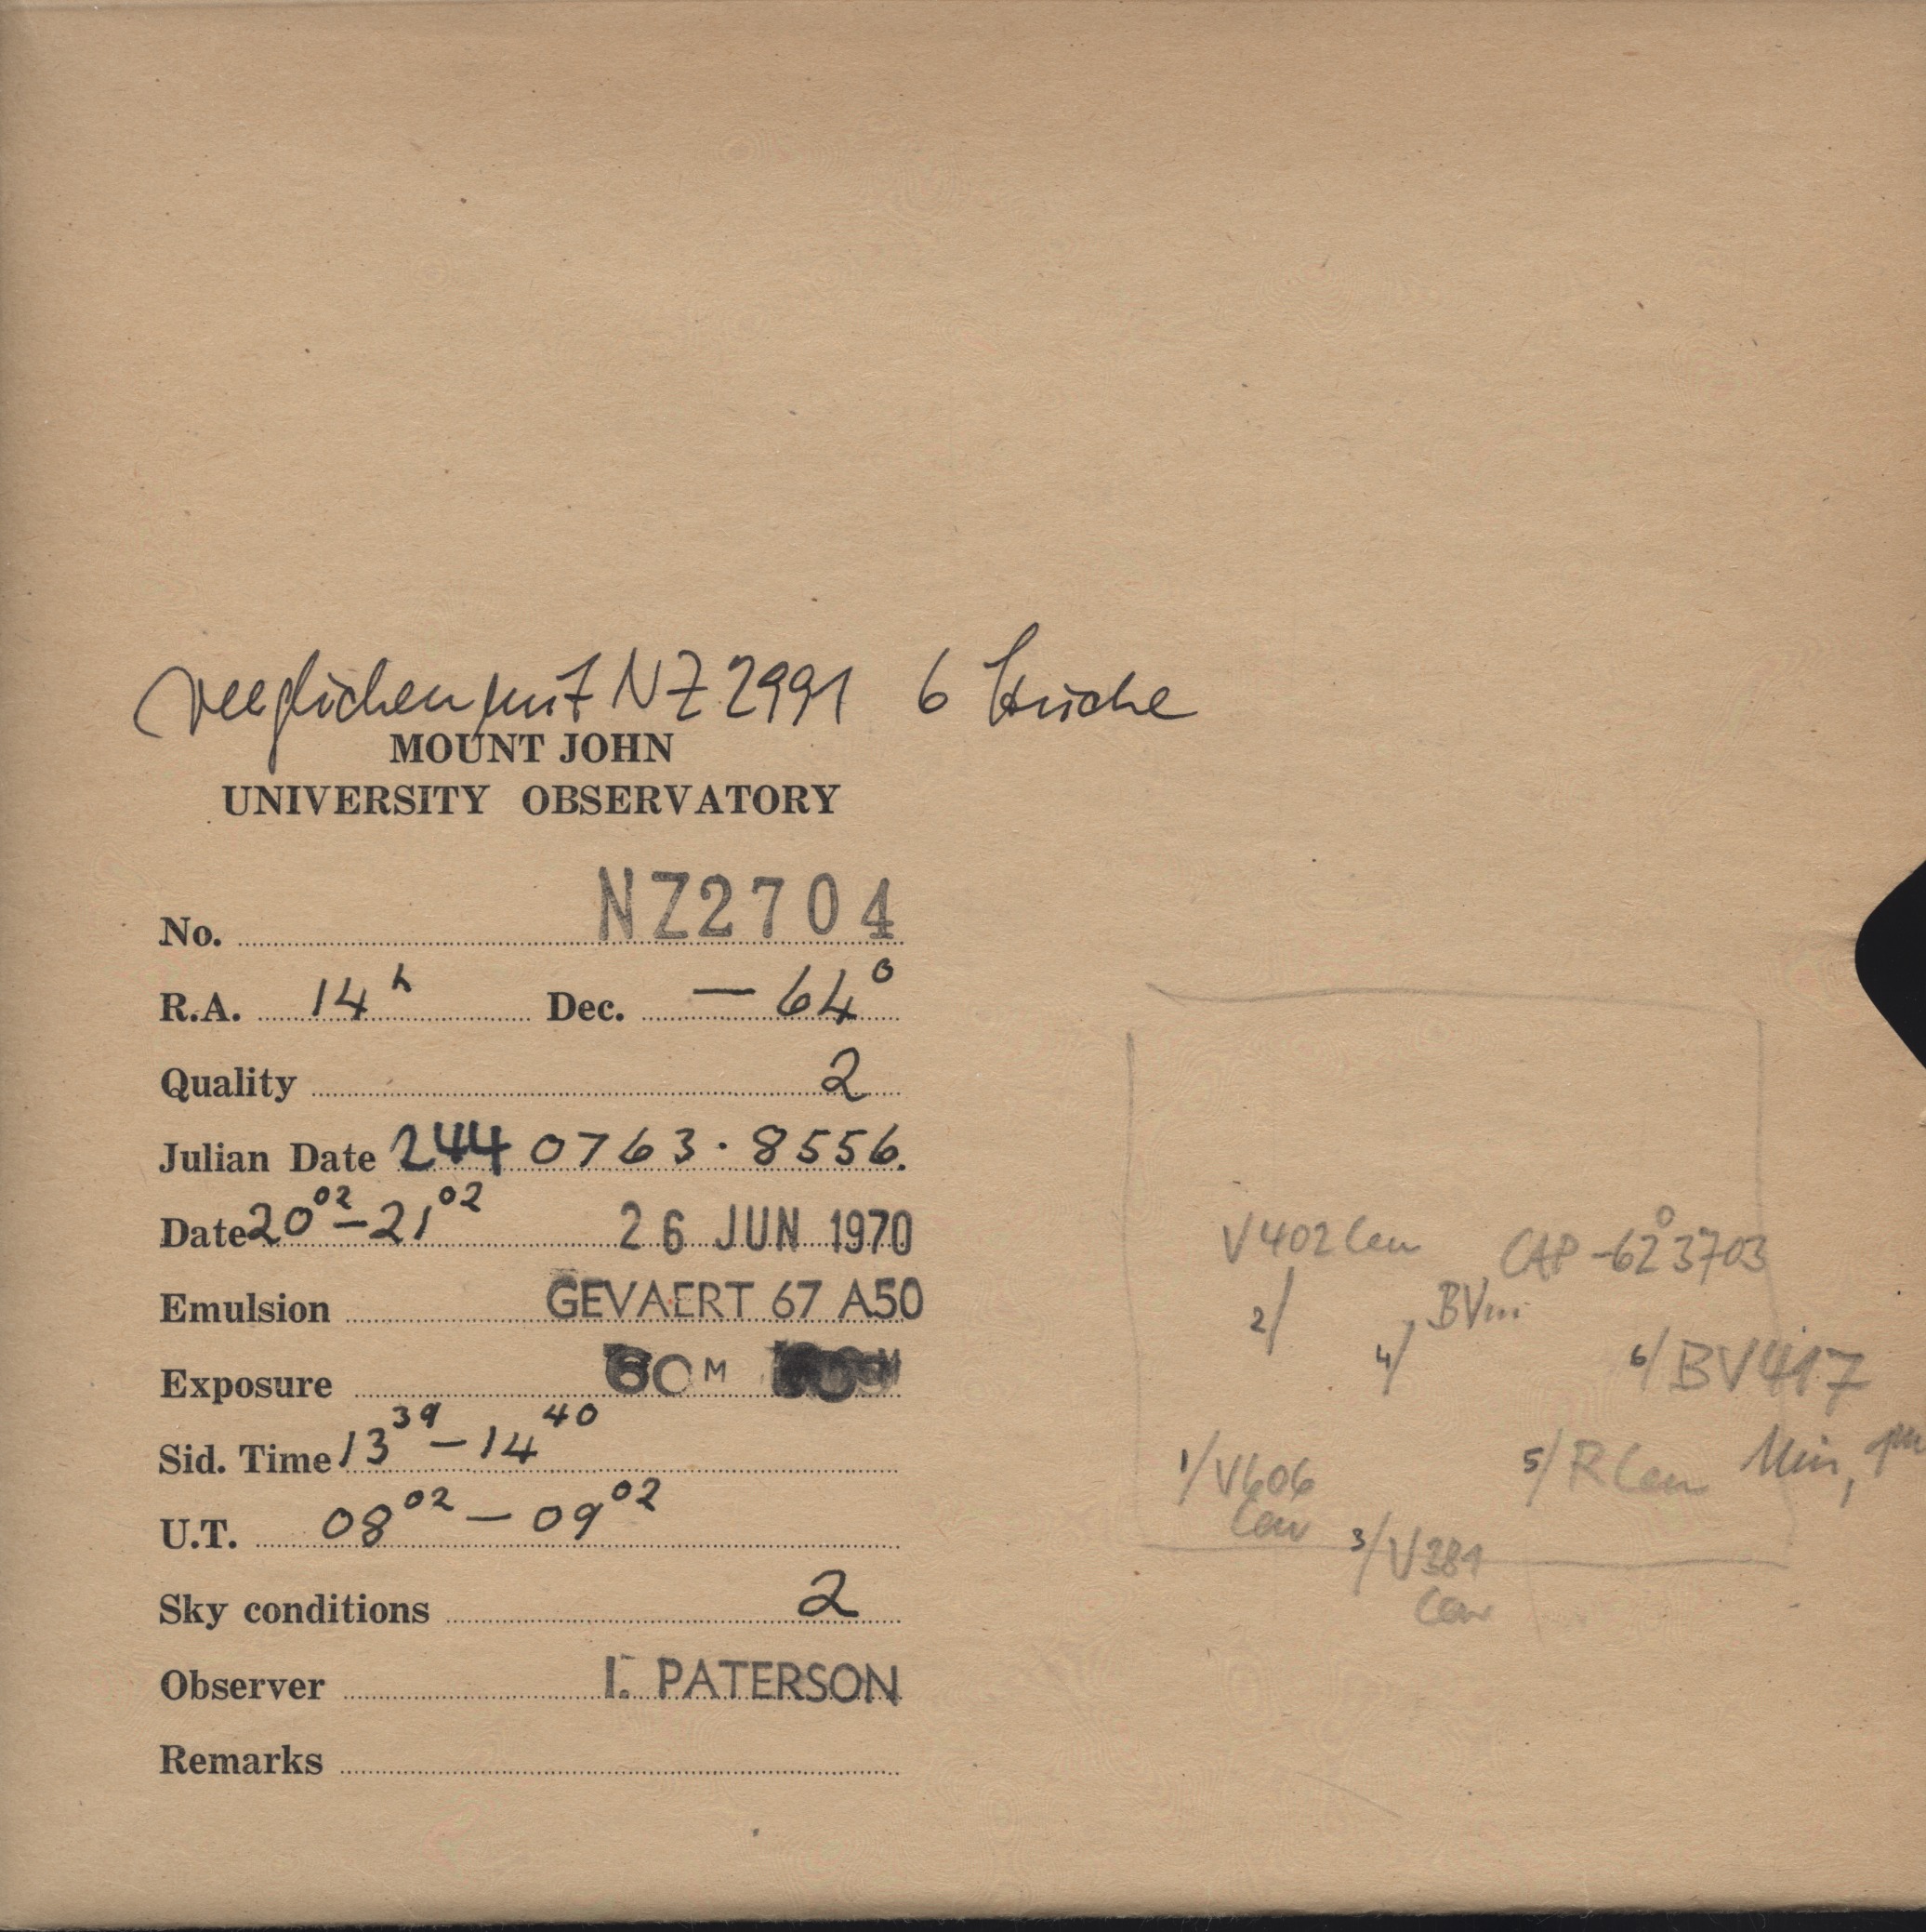 verglichen mit NZ 2991 6 Striche
MOUNT JOHN
UNIVERSITY OBSERVATORY
No. NZ2704
R.A. 14h Dec. — 64°
Quality 2
Julian Date 244 0763.8556.
Date 20 02 – 21 02 26 JUN 1970
Emulsion GEVAERT 67 A50
Exposure 60 M
Sid. Time 13 39 – 14 40
U.T. 08 02 – 09 02
Sky conditions 2
Observer I. PATERSON
Remarks
V402 Cen CAP -62° 3703
2/ 4/ BV
6/ BV417
1/ V606 Cen
5/ R Cen Min,
3/ V381 Cen